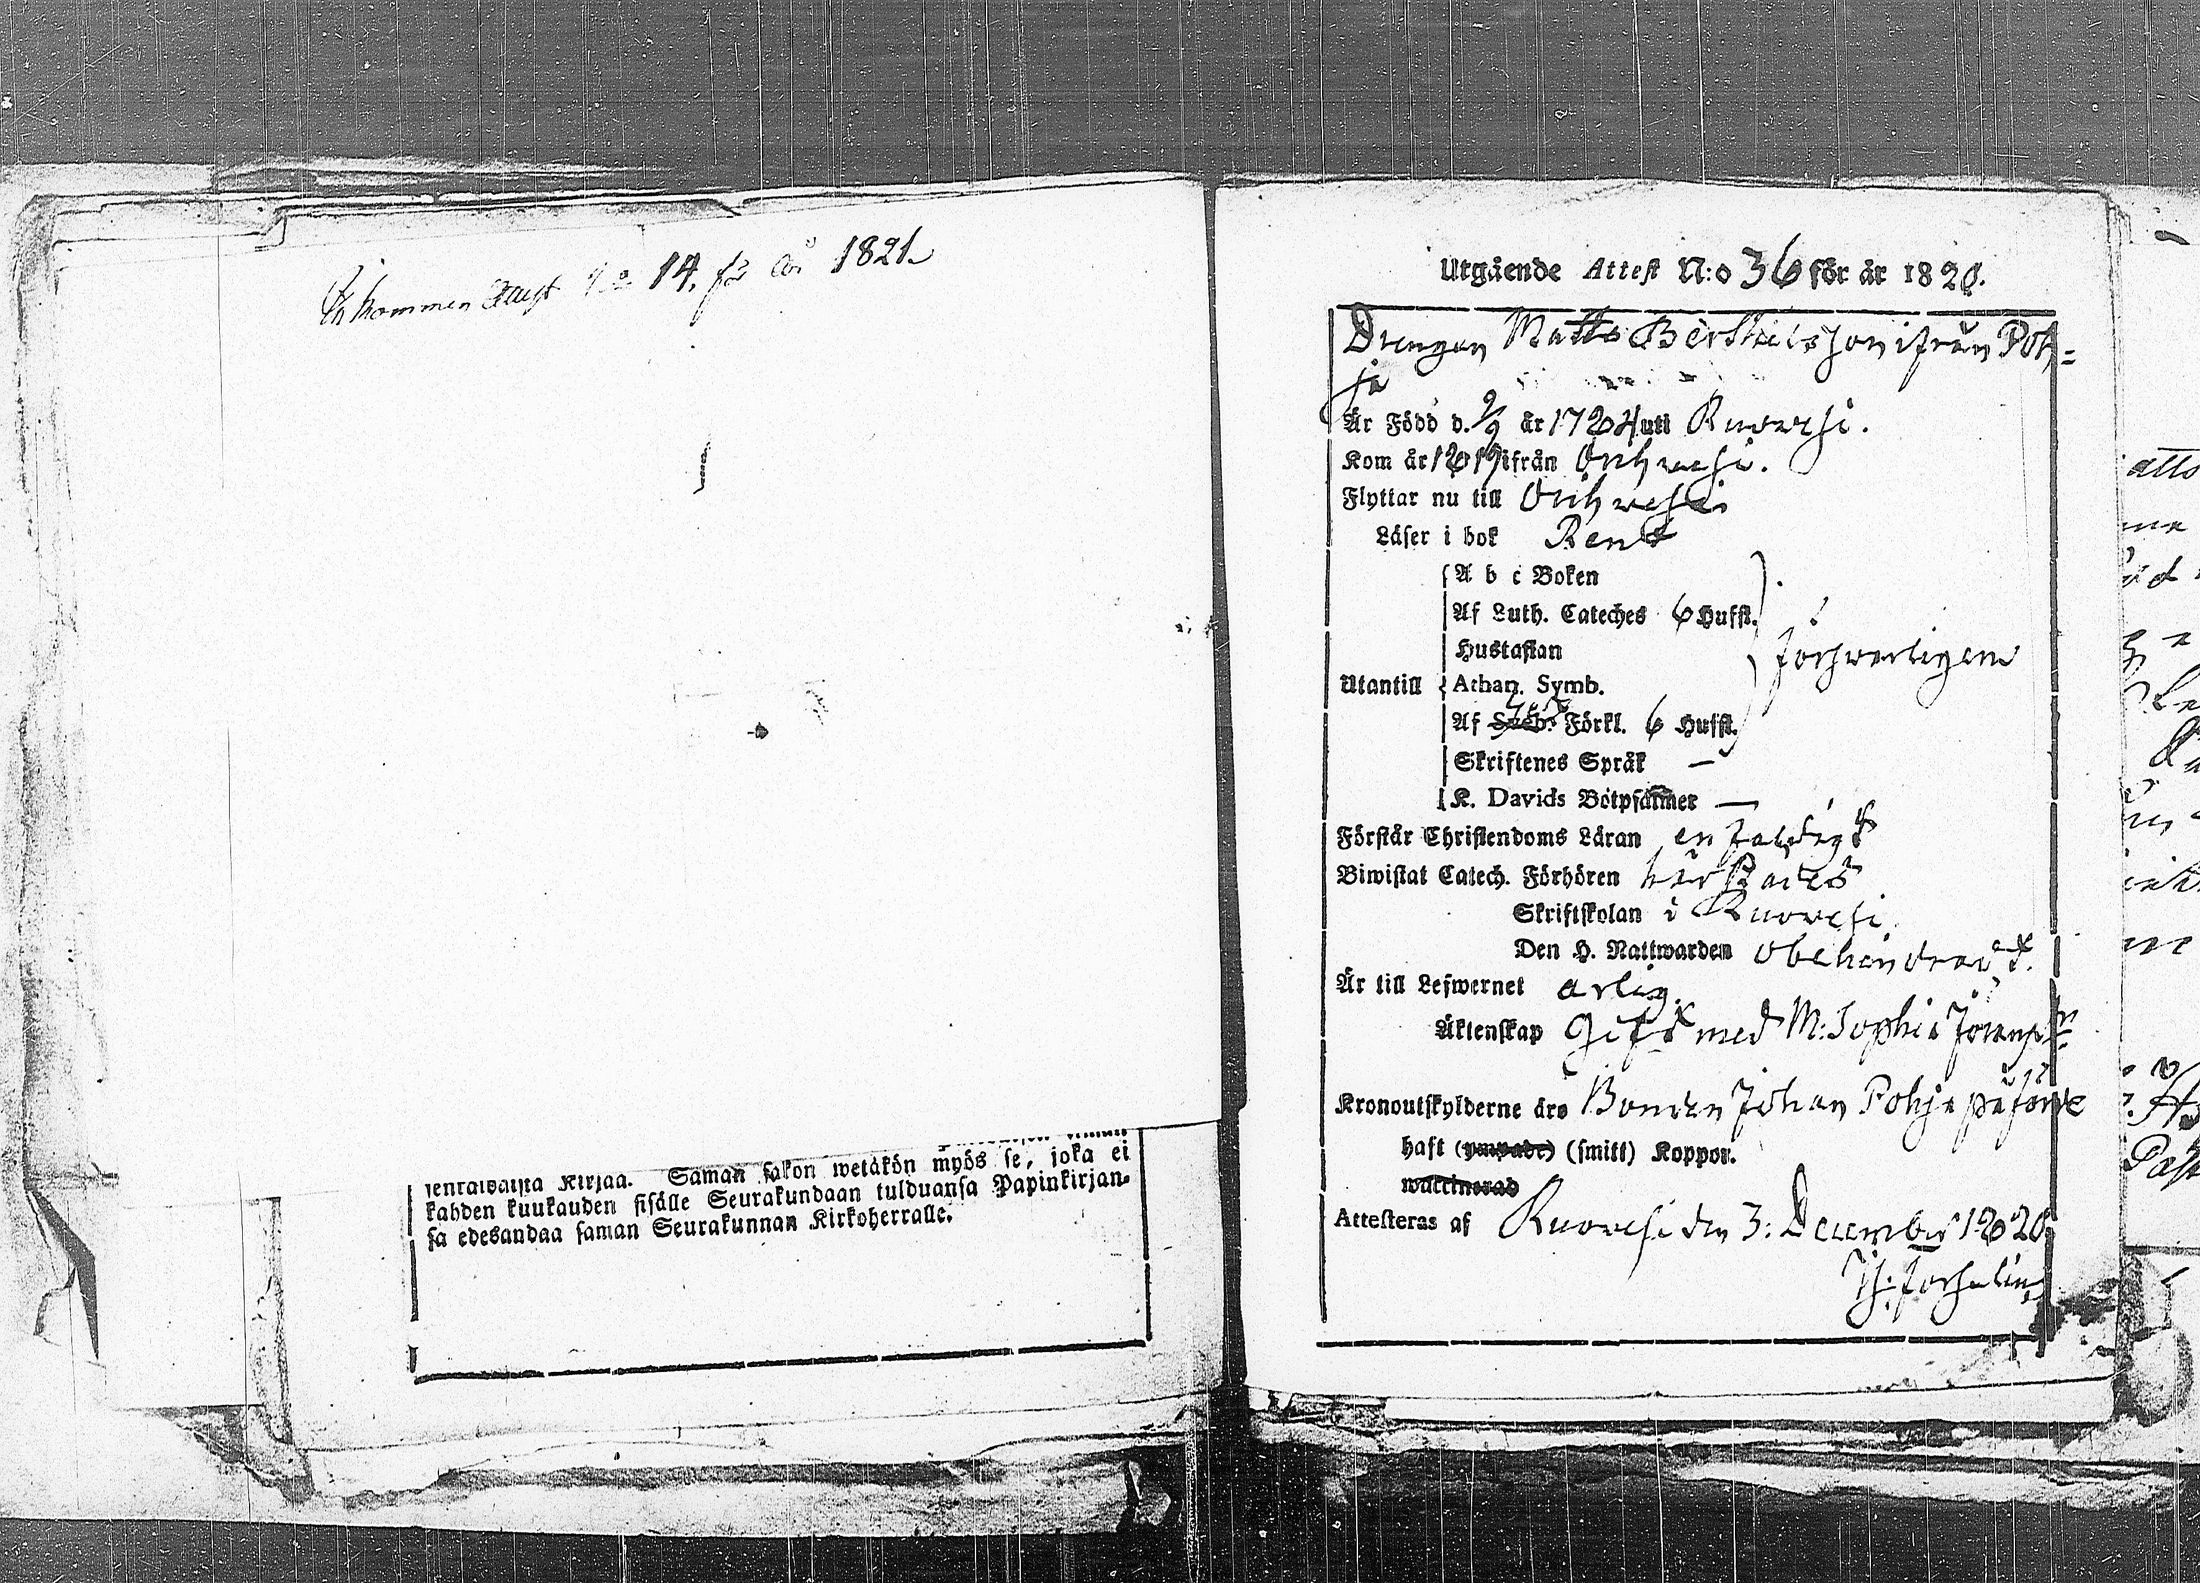 Inkommen Attest N:o 14. för år 1821.
sentawaista Kirjaa. Saman sakon wetäkön myös se, joka ei
kahden kuukauden sisälle Seurakundaan tulduansa Papinkirjan-
sa edesandaa saman Seurakunnan Kirkoherralle.
Utgående Attest N:o 36 för år 1820.
Drengen Matts Berthelsson ifrån Poh=
ja
Är Född d. 2/9 år 1784 uti Ruowesi.
Kom år 1819 ifrån Orihwesi.
Flyttar nu till Orihwesi
Läser i bok Rent
A b c Boken
Af Luth. Cateches 6 Hufst.
Hustaflan
förswarligen
Utantill Athan. Symb.
Af Sweb. Förkl. 6 Hufst.
Skriftenes Språk —
K. Davids Botpsalmer —
Förstår Christendoms Läran enfaldigt
Biwistat Catech. Förhören
Skriftskolan i Ruowesi
Den H. Nattwarden obehindrad
Är till Lefwernet ärlig.
Äktenskap Gift med M: Sophia
Kronoutskylderne äro Bonden Johan Pohja påförde
haft (ympade) (smitt) Koppor.
waccinerad
Attesteras af Ruowesi den 3: December 1820.